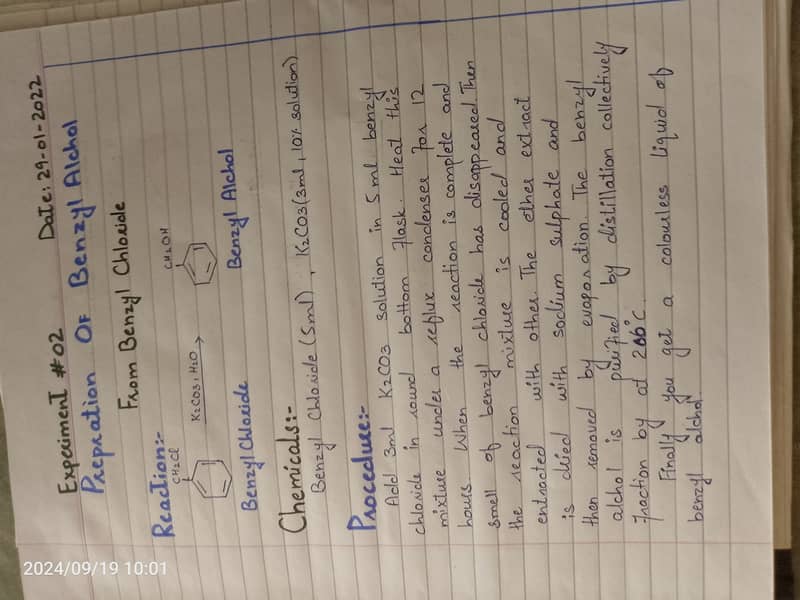 Experiment #02
Date: 29-01-2022
Prepration Of Benzyl Alchol
From Benzyl Chloride
Reaction:-
CH2Cl
K2CO3, H2O
CH2OH
Benzyl Chloride
Benzyl Alchol
Chemicals:-
Benzyl Chloride (5ml), K2CO3 (3ml, 10% solution)
Procedure:-
Add 3ml K2CO3 solution in 5ml benzyl
chloride in round bottom flask. Heat this
mixture under a reflux condenser for 12
hours. When the reaction is complete and
smell of benzyl chloride has disappeared. Then
the reaction mixture is cooled and
extracted with other. The ether extract
is dried with sodium sulphate and
then removed by evaporation. The benzyl
alchol is purified by distillation collectively
fraction by at 206°C.
Finally you get a colourless liquid of
benzyl alchol.
2024/09/19 10:01